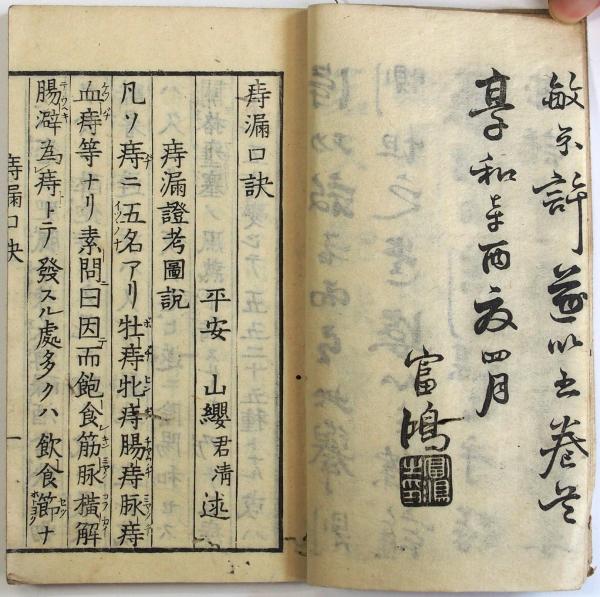 敏京許遂以出卷首
享和辛酉夏四月
富鴻
痔漏口訣
平安 山纓君淸述
痔漏證考圖說
凡ソ痔ニ五名アリ牡痔牝痔腸痔脉痔
血痔等ナリ素問曰因而飽食筋脉橫解
腸澼爲痔トテノ發スル處多クハ飮食節ナ
痔漏口訣
一